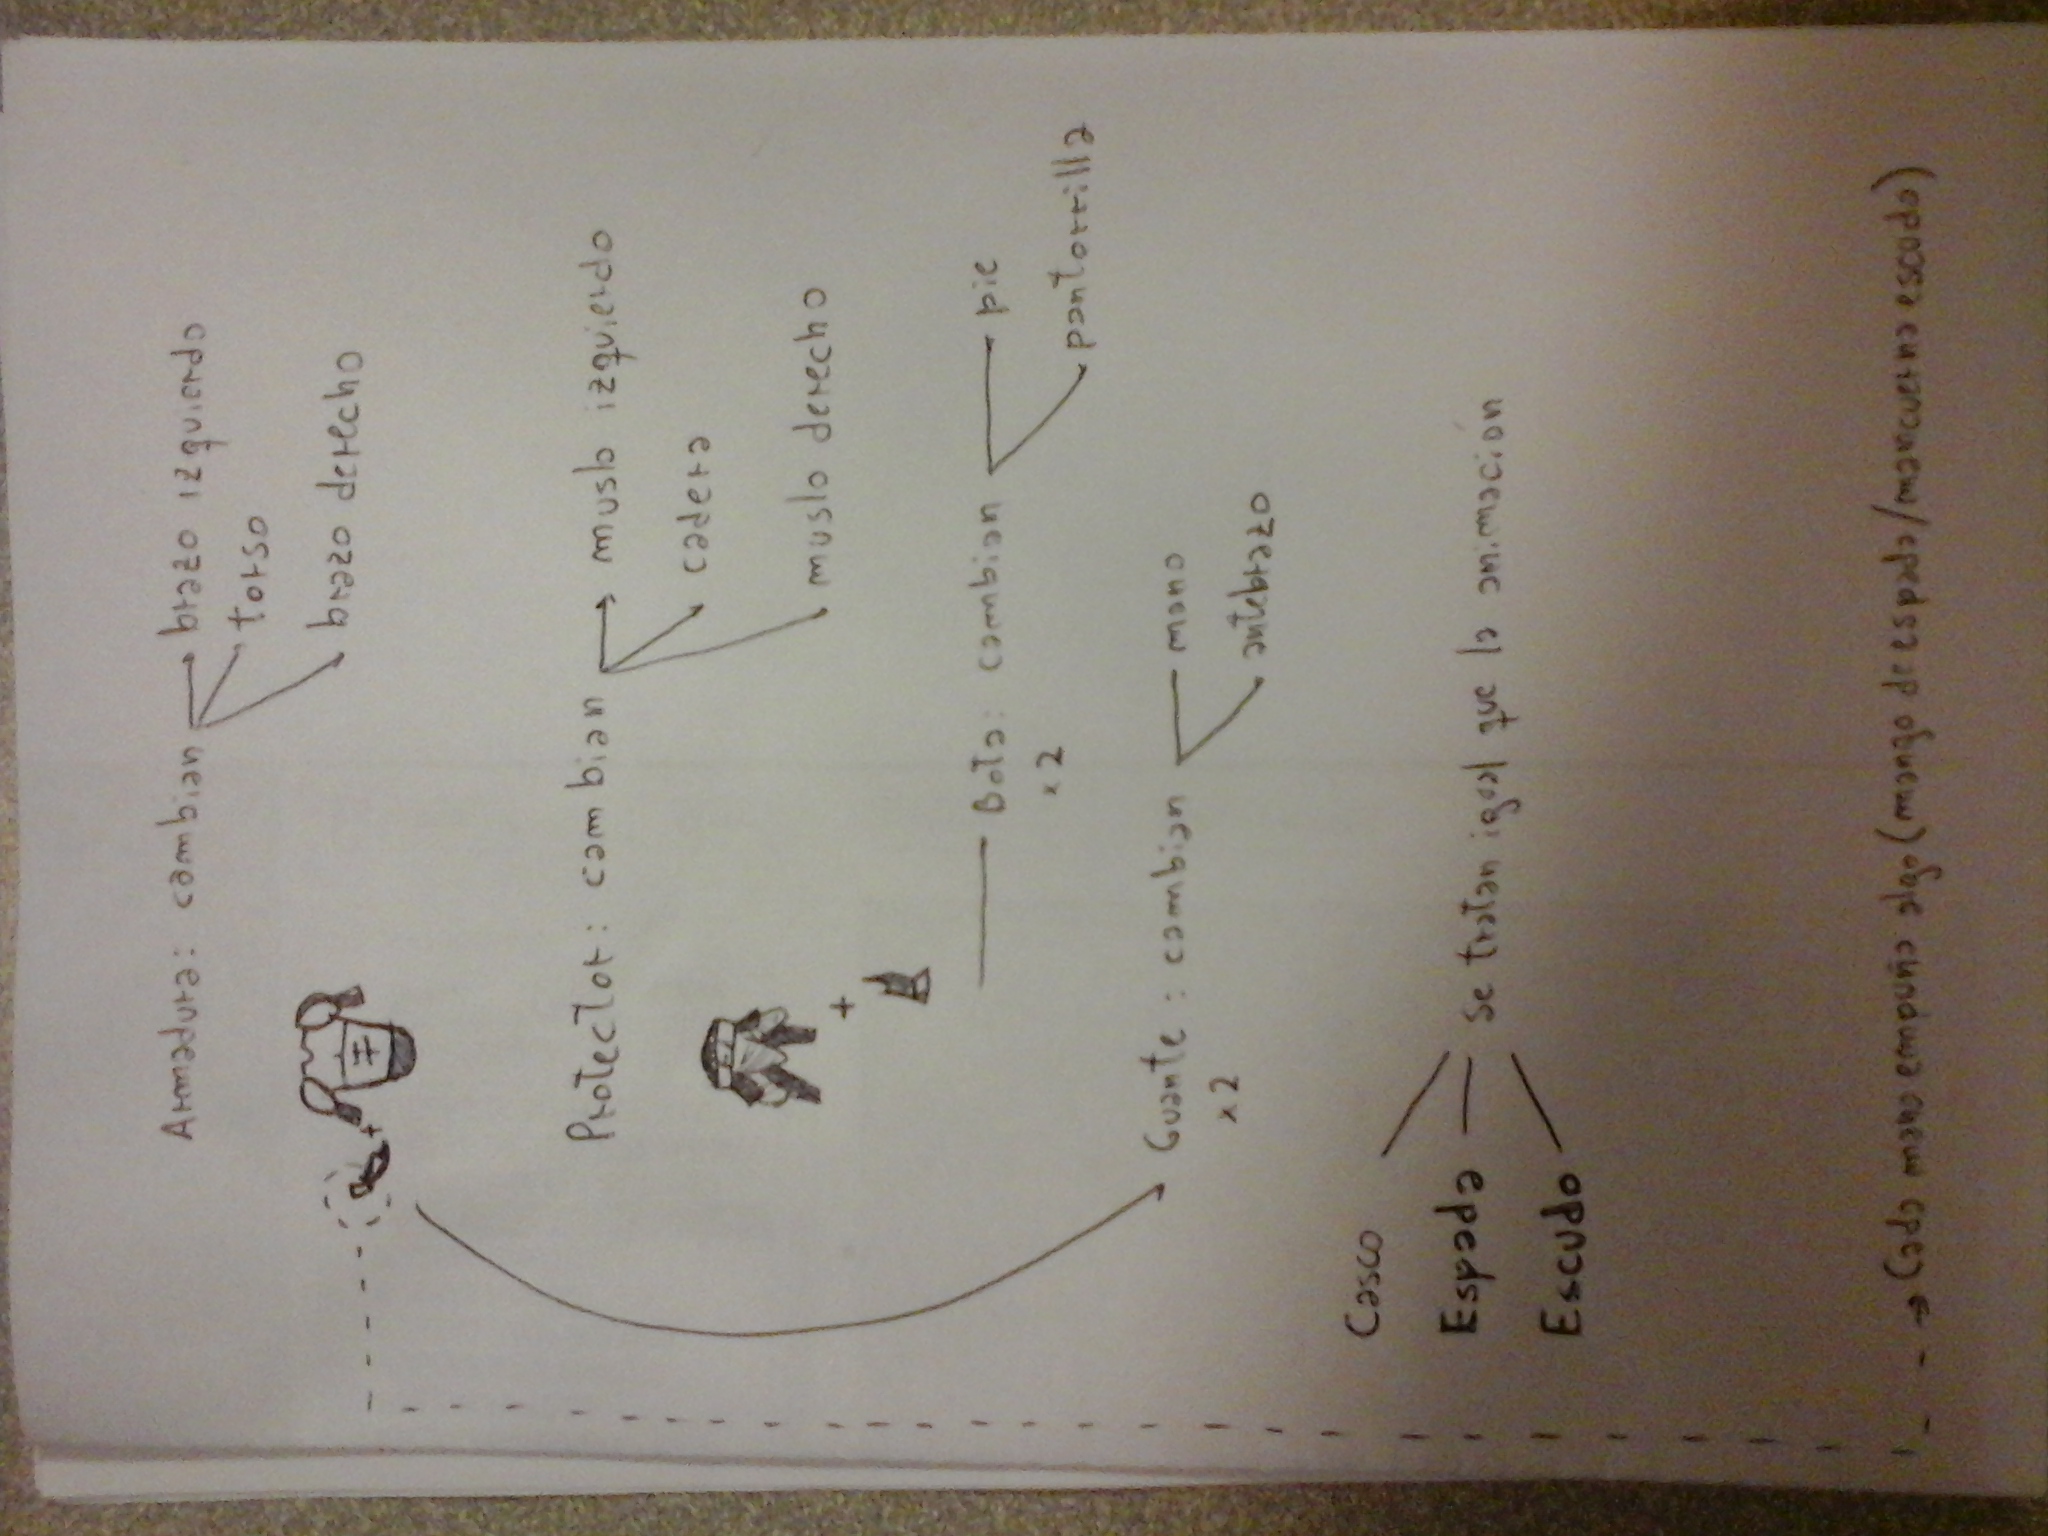 Armadura: cambian brazo izquierdo
torso
brazo derecho
+
Protector: cambian muslo izquierdo
cadera
muslo derecho
+
Bota: cambian pie
x2 pantorrilla
Guante: cambian mano
x2 antebrazo
Casco
Espada se tratan igual que la animación
Escudo
(cada mano empuña algo (mango de espada/